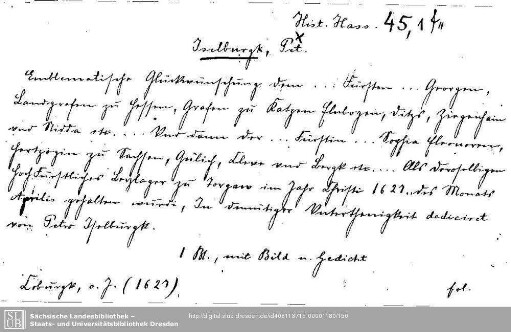 Hist. Hass. 45, 1
Iselburgk, Pet.
Emblematische Glückwünschung dem ... Fürsten ... Georgen,
Landgrafen zu Hessen, Grafen zu Katzen Elnbogen, Ditz, Ziegenhain
vnd Nidda etc. ... Vnd dann der ... Fürstin ... Sophia Eleonoren,
Hertzogin zu Sachsen, Gülich, Cleve vnd Bergk etc. ... Als derselbigen
Hoch Fürstliches Beylager zu Torgaw im Jahr Christi 1627. des Monats
Aprilis gehalten wurde, In demütiger Vnterthenigkeit dediciret
von Peter Iselburgk.
1 Bl., mit Bild u. Gedicht
Coburgk, o. J. (1627). fol.
Sächsische Landesbibliothek –
Staats- und Universitätsbibliothek Dresden